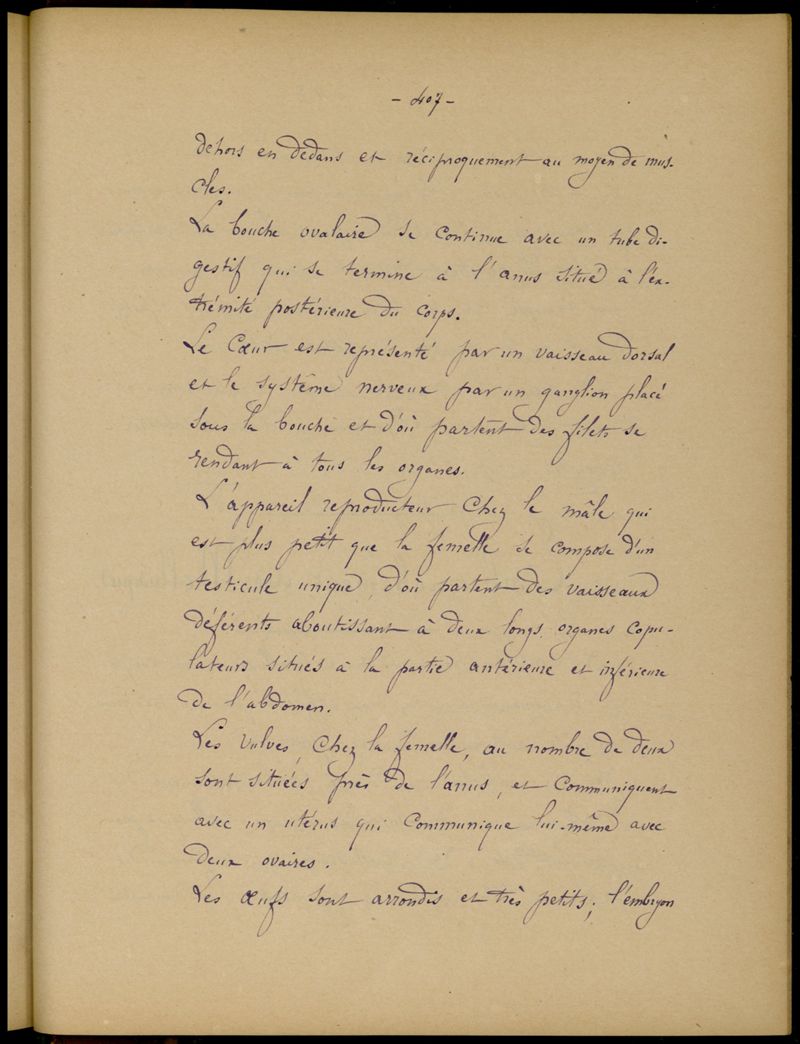 - 407 -
dehors en dedans et réciproquement au moyen de mus-
cles.
La bouche ovalaire se continue avec un tube di-
gestif qui se termine à l'anus situé à l'ex-
trémité postérieure du corps.
Le Cœur est représenté par un vaisseau dorsal
et le système nerveux par un ganglion placé
sous la bouche et d'où partent des filets se
rendant à tous les organes.
L'appareil reproducteur chez le mâle qui
est plus petit que la femelle se compose d'un
testicule unique, d'où partent des vaisseaux
déférents aboutissant à deux longs organes copu-
lateurs situés à la partie antérieure et inférieure
de l'abdomen.
Les vulves, chez la femelle, au nombre de deux
sont situées près de l'anus, et communiquent
avec un utérus qui communique lui-même avec
deux ovaires.
Les œufs sont arrondis et très petits; l'embryon